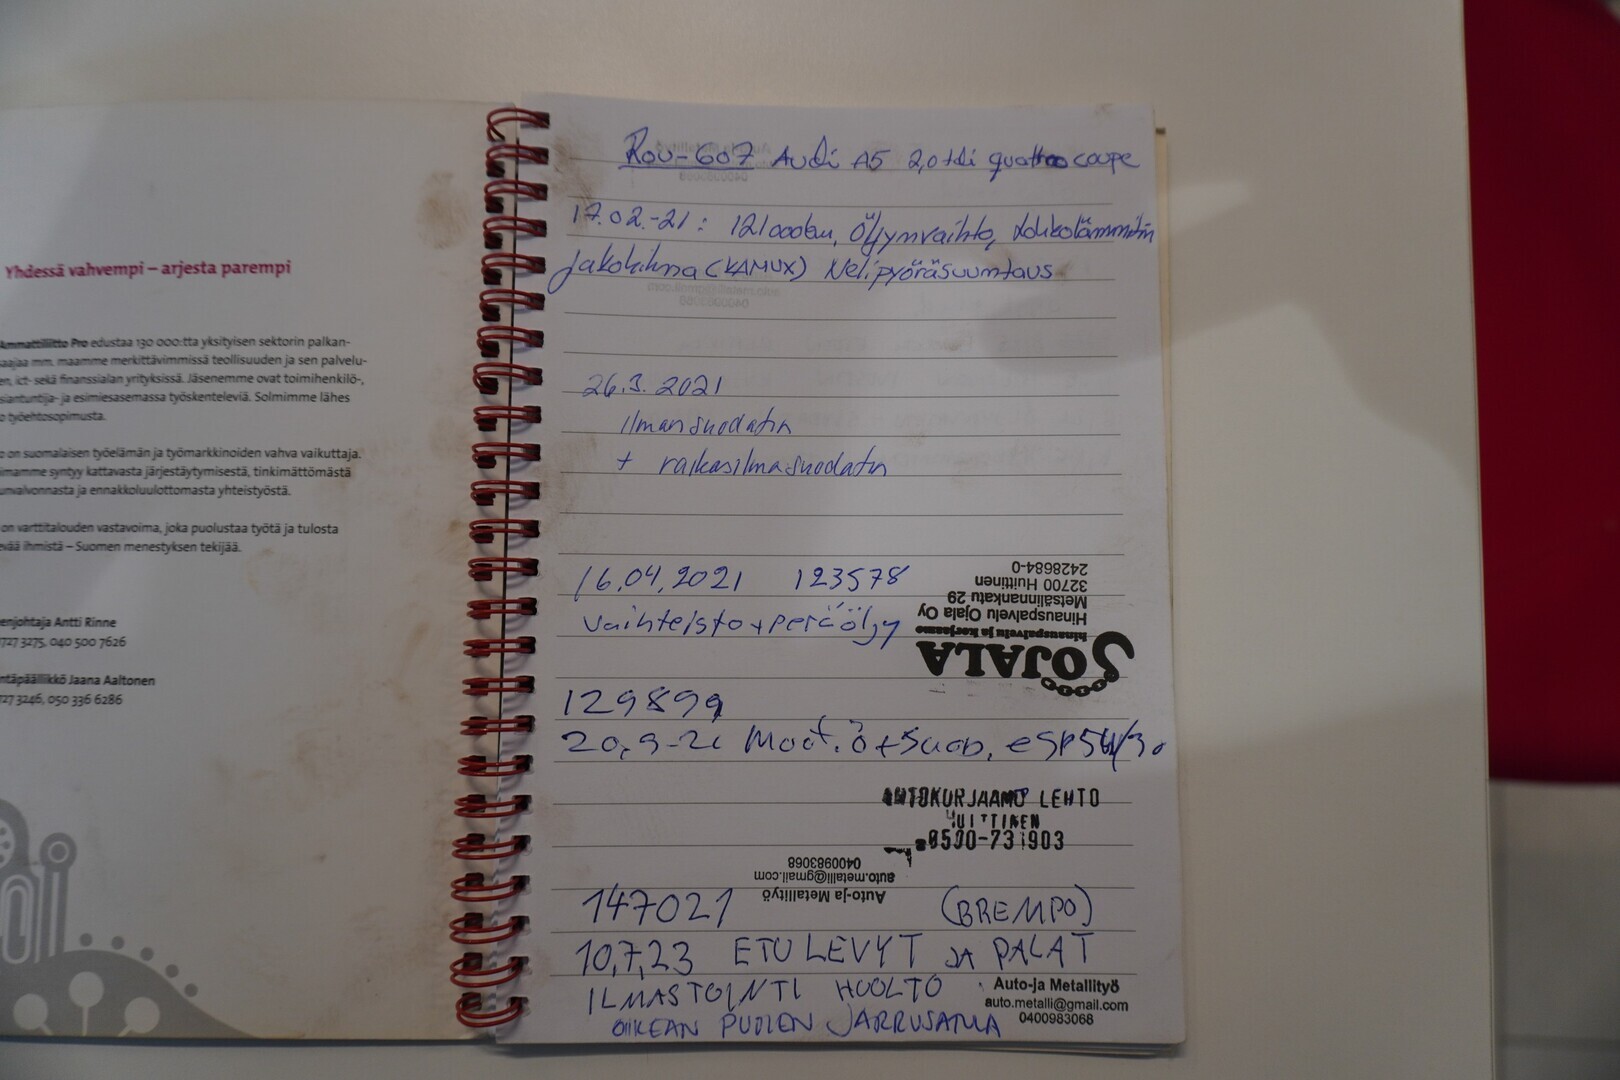 Yhdessä vahvempi – arjesta parempi
Ammattiliitto Pro edustaa 130 000:tta yksityisen sektorin palkan-
saajaa mm. maamme merkittävimmissä teollisuuden ja sen palvelu-
en, ict- sekä finanssialan yrityksissä. Jäsenemme ovat toimihenkilö-,
siantuntija- ja esimiesasemassa työskenteleviä. Solmimme lähes
o työehtosopimusta.
o on suomalaisen työelämän ja työmarkkinoiden vahva vaikuttaja.
imamme syntyy kattavasta järjestäytymisestä, tinkimättömästä
unvalvonnasta ja ennakkoluulottomasta yhteistyöstä.
on varttitalouden vastavoima, joka puolustaa työtä ja tulosta
evää ihmistä – Suomen menestyksen tekijää.
enjohtaja Antti Rinne
727 3275, 040 500 7626
ntäpäällikkö Jaana Aaltonen
727 3246, 050 336 6286
ROU-607 Audi A5 2,0 tdi quattro coupe
17.02.-21: 121000km, Öljynvaihto, Lohkolämmitin
Jakohihna (KAMUX) Nelipyöräsuuntaus
26.3.2021
Ilmansuodatin
+ raikasilmasuodatin
16.04.2021 123578
Vaihteisto + peräöljy
OJALA
hinauspalvelu ja korjaamo
Hinauspalvelu Ojala Oy
Metsälinnankatu 29
32700 Huittinen
2428684-0
129899
20,9-21 Moot.Ö+Suod, ESP 5W/30
AUTOKORJAAMO LEHTO
HUITTINEN
Auto-ja Metallityö
auto.metalli@gmail.com
0400983068
147021 (BREMPO)
10,7,23 ETU LEVYT JA PALAT
ILMASTOINTI HUOLTO
OIKEAN PUOLEN JARRUSATULA
Auto-ja Metallityö
auto.metalli@gmail.com
0400983068